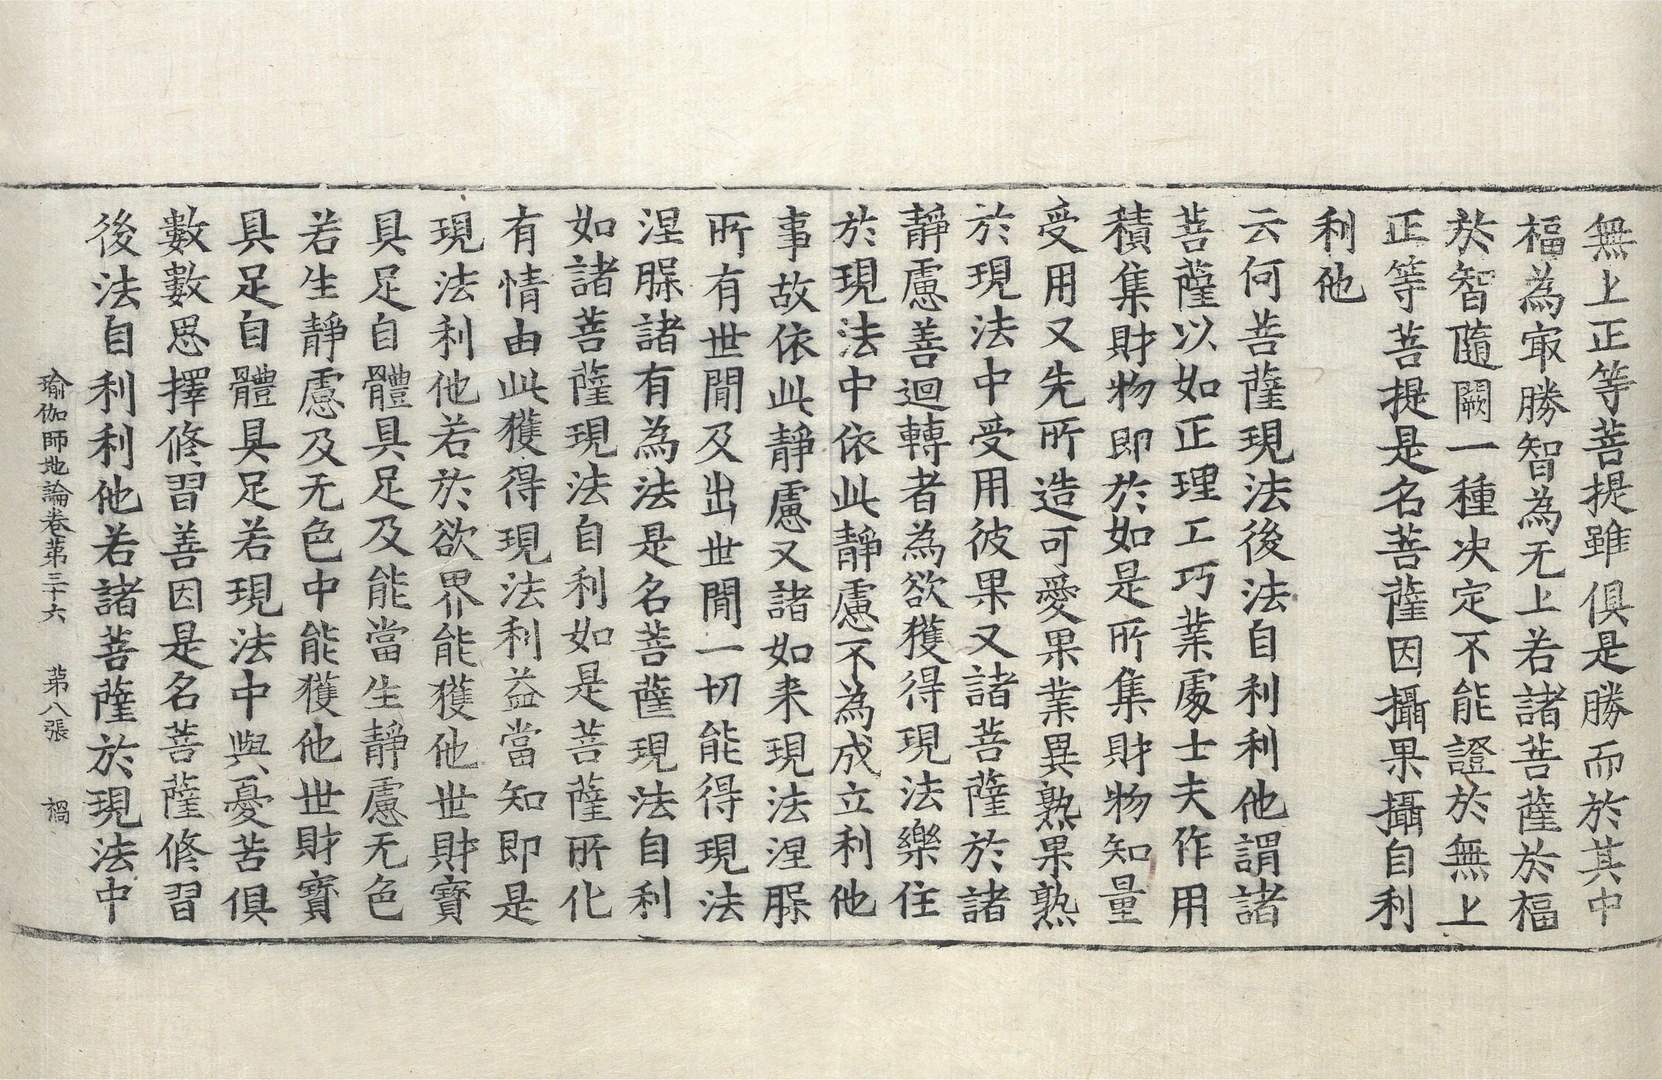 無上正等菩提雖俱是勝而於其中
福為冣勝智為无上若諸菩薩於福
於智隨闕一種决定不能證於無上
正等菩提是名菩薩因攝果攝自利
利他
云何菩薩現法後法自利利他謂諸
菩薩以如正理工巧業處士夫作用
積集財物即於如是所集財物知量
受用又先所造可愛果業異熟果熟
於現法中受用彼果又諸菩薩於諸
靜慮善迴轉者為欲獲得現法樂住
於現法中依此靜慮不為成立利他
事故依此靜慮又諸如来現法涅脲
所有世閒及出世閒一切能得現法
涅脲諸有為法是名菩薩現法自利
如諸菩薩現法自利如是菩薩所化
有情由此獲得現法利益當知即是
現法利他若於欲界能獲他世財寶
具足自體具足及能當生靜慮无色
若生靜慮及无色中能獲他世財寶
具足自體具足若現法中與憂苦俱
數數思擇修習善因是名菩薩修習
後法自利利他若諸菩薩於現法中
瑜伽師地論卷第三十六 第八張 禍